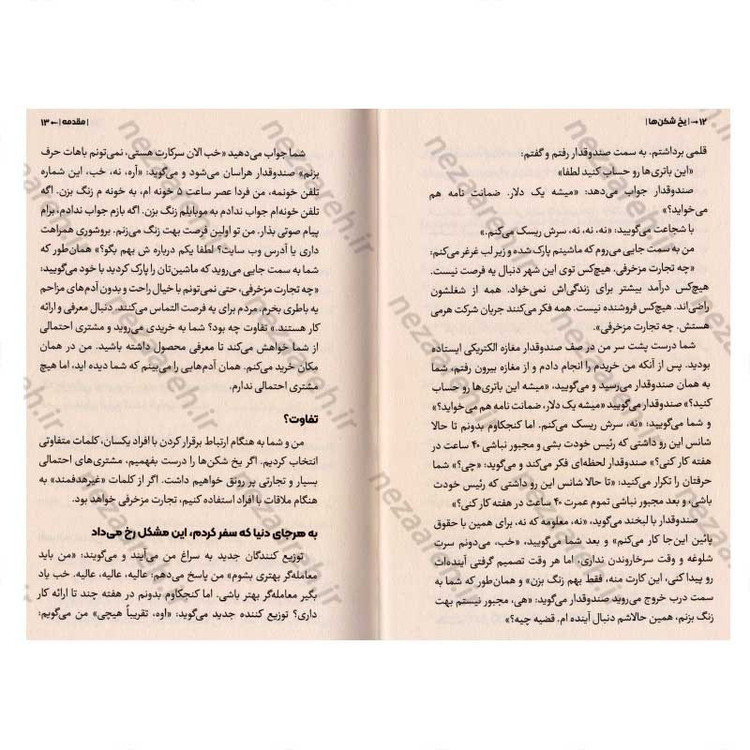 ۱۲ → | یخ شکن‌ها |
قلمی برداشتم. به سمت صندوقدار رفتم و گفتم:
«این باتری‌ها رو حساب کنید لطفا»
صندوقدار جواب می‌دهد: «میشه یک دلار. ضمانت نامه هم
می‌خواید؟»
با شجاعت می‌گویید: «نه، نه، نه، سرش ریسک می‌کنم.»
من به سمت جایی می‌روم که ماشینم پارک شده و زیر لب غرغر می‌کنم:
«چه تجارت مزخرفی، هیچ‌کس توی این شهر دنبال یه فرصت نیست.
هیچ‌کس درآمد بیشتر برای زندگی‌اش نمی‌خواد. همه از شغلشون
راضی‌اند. هیچ‌کس فروشنده نیست. همه فکر می‌کنند جریان شرکت هرمی
هستش. چه تجارت مزخرفی».
شما درست پشت سر من در صف صندوقدار مغازه الکتریکی ایستاده
بودید. پس از آنکه من خریدم را انجام دادم و از مغازه بیرون رفتم، شما
به همان صندوقدار می‌رسید و می‌گویید، «میشه این باتری‌ها رو حساب
کنید؟» صندوقدار می‌گوید: «میشه یک دلار، ضمانت نامه هم می‌خواید؟»
و شما می‌گویید: «نه، سرش ریسک می‌کنم. اما کنجکاوم بدونم تا حالا
شانس این رو داشتی که رئیس خودت بشی و مجبور نباشی ۴۰ ساعت در
هفته کار کنی؟» صندوقدار لحظه‌ای فکر می‌کند و می‌گوید: «چی؟» شما
حرفتان را تکرار می‌کنید: «تا حالا شانس این رو داشتی که رئیس خودت
باشی، و بعد مجبور نباشی تموم عمرت ۴۰ ساعت در هفته کار کنی؟»
صندوقدار با لبخند می‌گوید، «نه، معلومه که نه، برای همین با حقوق
پائین این‌جا کار می‌کنم» و بعد شما می‌گویید، «خب، می‌دونم سرت
شلوغه و وقت سرخاروندن نداری، اما هر وقت تصمیم گرفتی آینده‌ات
رو پیدا کنی، این کارت منه، فقط بهم زنگ بزن» و همان‌طور که شما به
سمت درب خروج می‌روید صندوقدار می‌گوید: «هی، مجبور نیستم بهت
زنگ بزنم، همین حالاشم دنبال آینده ام. قضیه چیه؟»
| مقدمه | ← ۱۳
شما جواب می‌دهید «خب الان سرکارت هستی، نمی‌تونم باهات حرف
بزنم» صندوقدار هراسان می‌شود و می‌گوید: «آره، نه، خب، این شماره
تلفن خونمه، من فردا عصر ساعت ۵ خونه ام، به خونه م زنگ بزن. اگه
تلفن خونه‌ام جواب ندادم به موبایلم زنگ بزن. اگه بازم جواب ندادم، برام
پیام صوتی بذار. من تو اولین فرصت بهت زنگ می‌زنم. بروشوری همراهت
داری یا آدرس وب سایت؟ لطفا یکم درباره ش بهم بگو؟» همان‌طور که
شما به سمت جایی می‌روید که ماشین‌تان را پارک کردید با خود می‌گویید:
«چه تجارت مزخرفی، حتی نمی‌تونم با خیال راحت و بدون آدم‌های مزاحم
یه باطری بخرم. مردم برای یه فرصت التماس می‌کنند. دنبال معرفی و ارائه
کار هستند.» تفاوت چه بود؟ شما به خریدی می‌روید و مشتری احتمالی
از شما خواهش می‌کند تا معرفی محصول داشته باشید. من در همان
مکان خرید می‌کنم. همان آدم‌هایی را می‌بینم که شما دیده اید، اما هیچ
مشتری احتمالی ندارم.
تفاوت؟
من و شما به هنگام ارتباط برقرار کردن با افراد یکسان، کلمات متفاوتی
انتخاب کردیم. اگر یخ شکن‌ها را درست بفهمیم، مشتری‌های احتمالی
بسیار و تجارتی پر رونق خواهیم داشت. اگر از کلمات «غیرهدفمند» به
هنگام ملاقات با افراد استفاده کنیم، تجارت مزخرفی خواهد بود.
به هرجای دنیا که سفر کردم، این مشکل رخ می‌داد
توزیع کنندگان جدید به سراغ من می‌آیند و می‌گویند: «من باید
معامله‌گر بهتری بشوم» من پاسخ می‌دهم: «عالیه، عالیه، عالیه. خب یاد
بگیر معامله‌گر بهتری باشی. اما کنجکاوم بدونم در هفته چند تا ارائه کار
داری؟ توزیع کننده جدید می‌گوید: «اوه، تقریباً هیچی» من می‌گویم:
nezaareh.ir